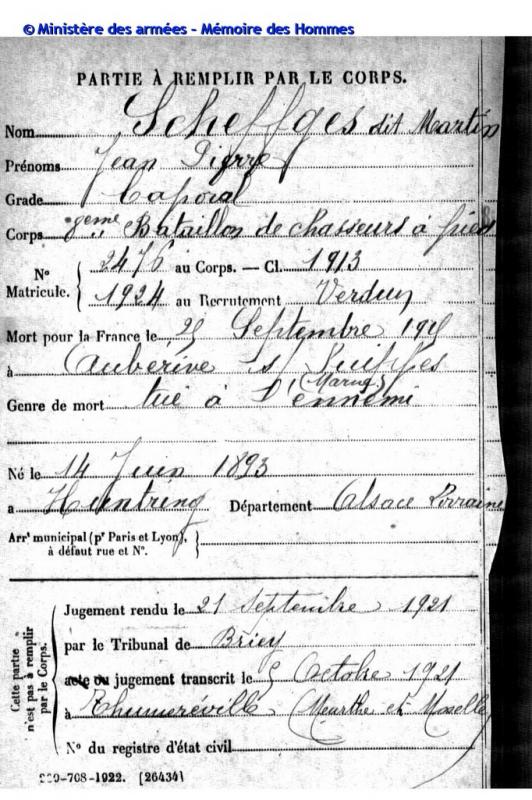 © Ministère des armées - Mémoire des Hommes
PARTIE À REMPLIR PAR LE CORPS.
Nom Scheffges dit Martin
Prénoms Jean Pierre
Grade Caporal
Corps 8eme Bataillon de chasseurs à pied
N° Matricule. { 2476 au Corps. — Cl. 1913
1924 au Recrutement Verdun
Mort pour la France le 25 Septembre 1915
à Auberive s/ Suippes
(Marne)
Genre de mort tué à l'ennemi
Né le 14 Juin 1893
à Huntring Département Alsace Lorraine
Arrt municipal (pr Paris et Lyon), }
à défaut rue et N°.
Cette partie n'est pas à remplir par le Corps.
Jugement rendu le 21 Septembre 1921
par le Tribunal de Briey
acte ou jugement transcrit le 5 Octobre 1921
à Thumeréville (Meurthe et Moselle)
N° du registre d'état civil
-708-1922. [26434]